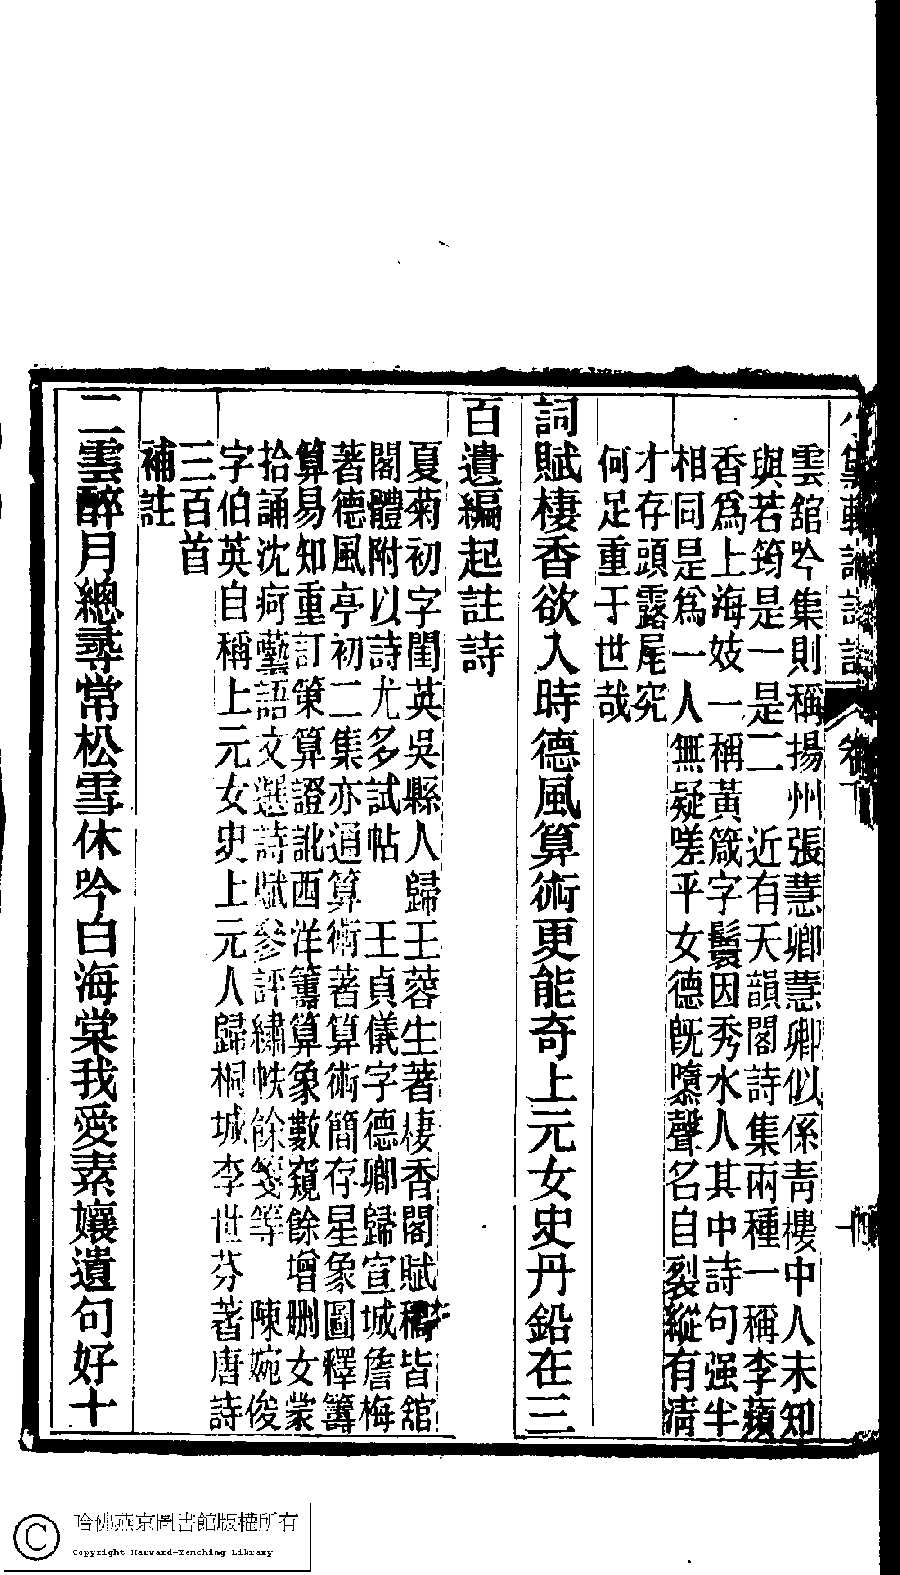 小黛軒論詩詩 卷
雲舘吟集則稱揚州張慧卿慧卿似係靑樓中人未知
與若筠是一是二 近有天韻閣詩集兩種一稱李蘋
香爲上海妓一稱黃箴字鬟因秀水人其中詩句强半
相同是爲一人無疑嗟乎女德旣隳聲名自裂縱有淸
才存頭露尾究
何足重于世哉
詞賦棲香欲入時德風算術更能奇上元女史丹鉛在三
百遺編起註詩
夏菊初字閨英吳縣人歸王蓉生著棲香閣賦稿皆舘
閣體附以詩尤多試帖 王貞儀字德卿歸宣城詹梅
著德風亭初二集亦通算術著算術簡存星象圖釋籌
算易知重訂策算證訛西洋籌算象數窺餘增删女蒙
拾誦沈疴囈語文選詩賦參評繡帙餘箋等 陳婉俊
字伯英自稱上元女史上元人歸桐城李世芬著唐詩
三百首
補註
二雲醉月總尋常松雪休吟白海棠我愛素孃遺句好十
哈佛燕京圖書館版權所有
Copyright Harvard-Yenching Library